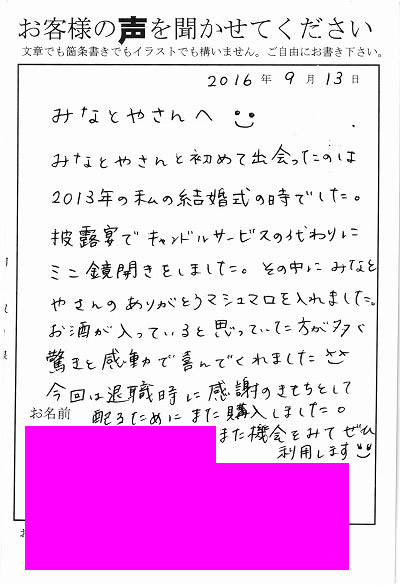 お客様の声を聞かせてください
文章でも箇条書きでもイラストでも構いません。ご自由にお書き下さい。
2016年9月13日
みなとやさんへ
みなとやさんと初めて出会ったのは
2013年の私の結婚式の時でした。
披露宴でキャンドルサービスの代わりに
ミニ鏡開きをしました。その中にみなと
やさんのありがとうマシュマロを入れました。
お酒が入っていると思っていた方が多く
驚きと感動で喜んでくれました
今回は退職時に感謝のきもちとして
お名前
配るためにまた購入しました。
また機会をみてぜひ
利用します